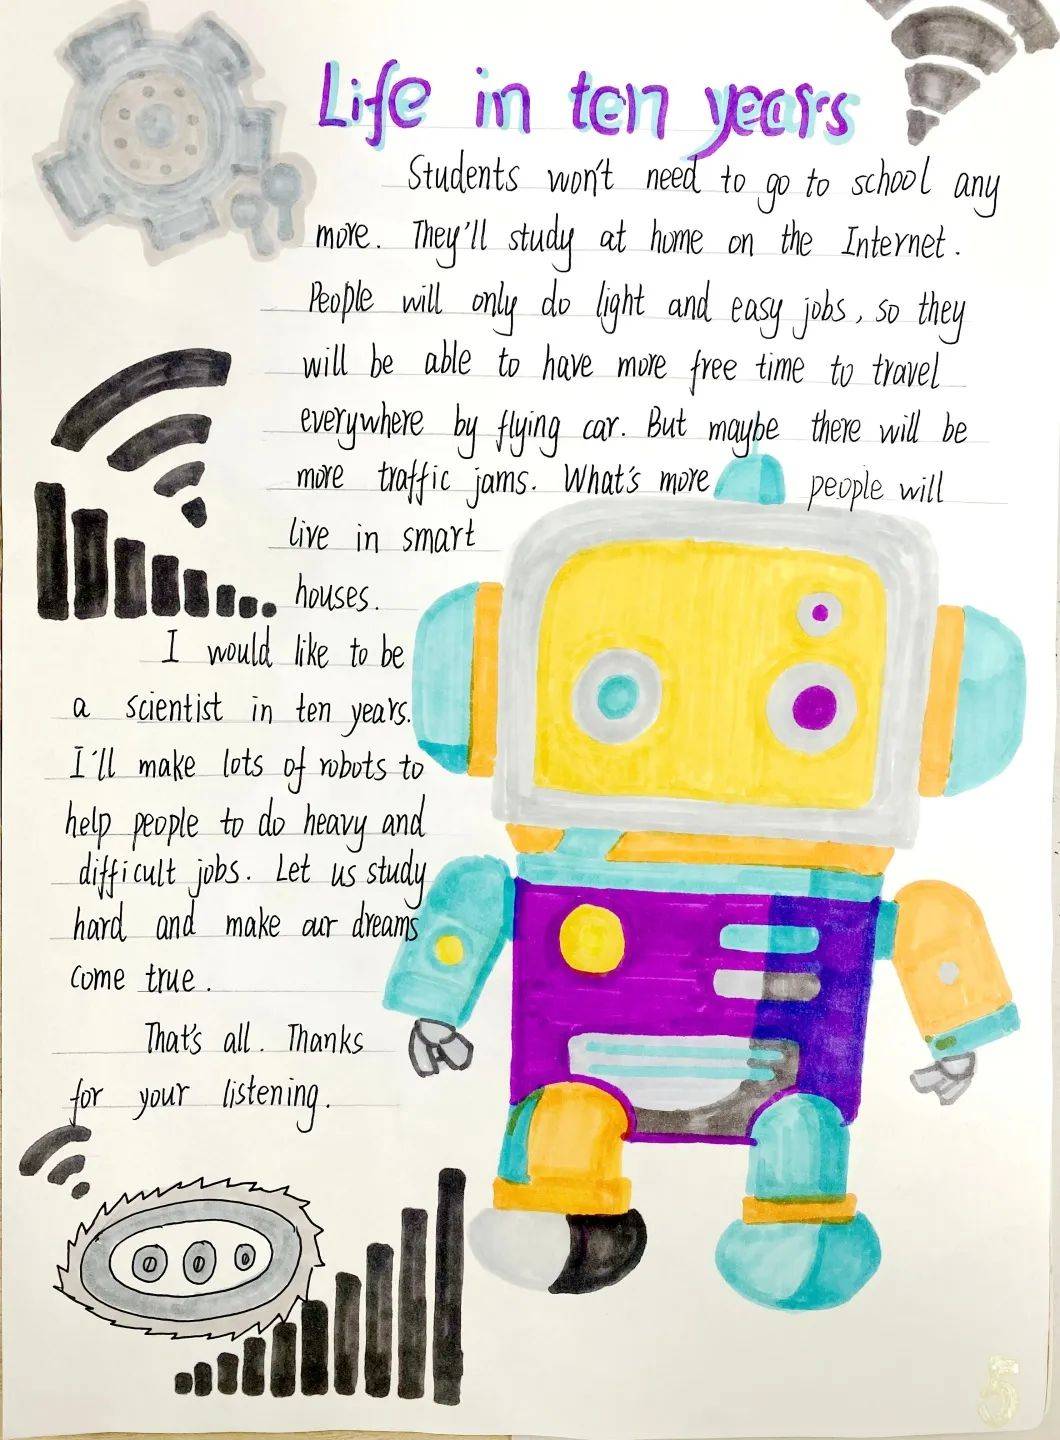 Life in ten years
Students won't need to go to school any
more. They'll study at home on the Internet.
People will only do light and easy jobs, so they
will be able to have more free time to travel
everywhere by flying car. But maybe there will be
more traffic jams. What's more people will
live in smart
houses.
I would like to be
a scientist in ten years.
I'll make lots of robots to
help people to do heavy and
difficult jobs. Let us study
hard and make our dreams
come true.
That's all. Thanks
for your listening.
5